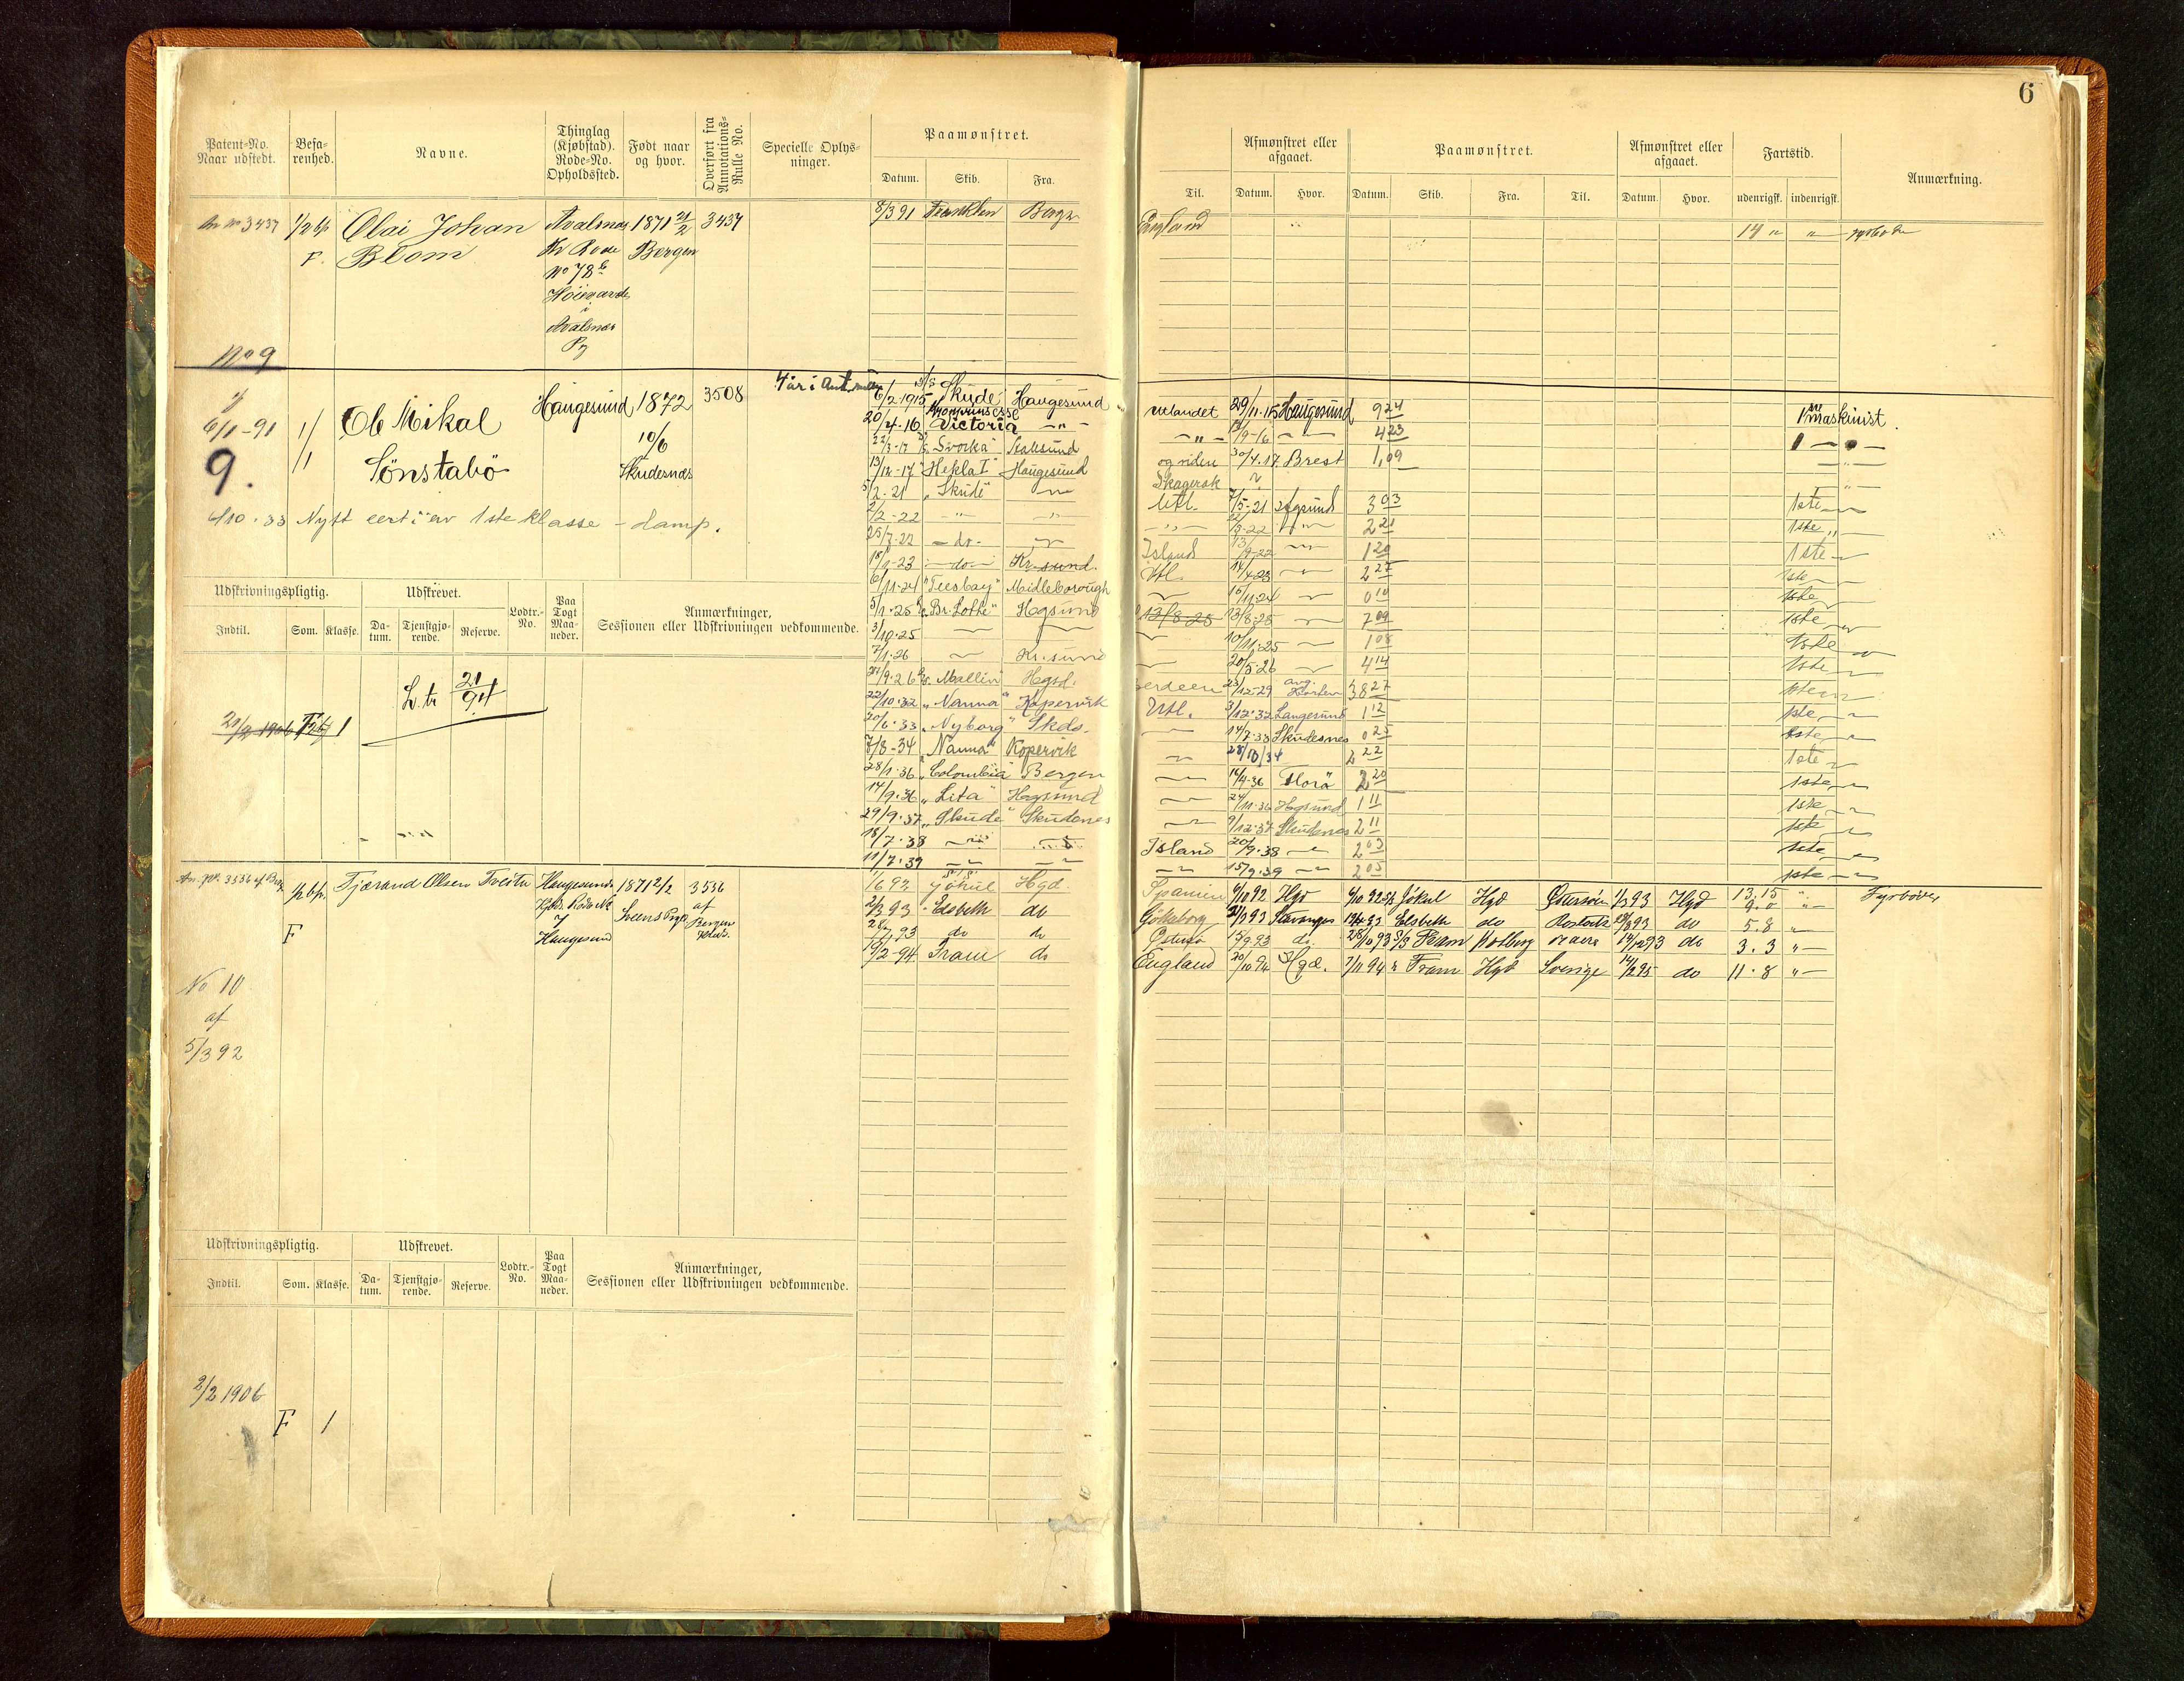 6
Patent-No.
Naar udstedt.
Befa-
renhed.
Navne.
Thinglag
(Kjøbstad).
Rode-No.
Opholdssted.
Født naar
og hvor.
Overført fra
Annotations-
Rulle No.
Specielle Oplys-
ninger.
Paamønstret.
Datum. Skib. Fra.
Til.
Afmønstret eller
afgaaet.
Datum. Hvor.
Paamønstret.
Datum. Skib. Fra. Til.
Afmønstret eller
afgaaet.
Datum. Hvor.
Fartstid.
udenrigsk. indenrigsk.
Anmærkning.
An No 3437 1/2 bf Olai Johan Avalsnes 1871 21/2 3437 8/3 91 Franklin Bergen England 14 " "
F. Blom Rode Bergen
No 78 b
Høievarde
i
Avalsnes
Pg
No 9
6/1-91 1/1 Ole Mikal Haugesund 1872 3508 4 år i
9. Sönstabö 10/6
Skudesnæs
6/10.33 Nytt cert. av 1ste klasse – damp.
6/2 1915 Skude Haugesund utlandet 29/11.15 Haugesund 9 24 1ste maskinist.
20/4-16 Kronprinsesse Victoria – " – – " – 13/9-16 4 23
22/3-17 Svorka Aalesund og viden 30/4.17 Brest 1,09
13/12-17 Hekla I Haugesund Skagerak
5/2-21 "Skude" Utl. 7/5-21 Hgsund 3 03 1ste
2/2-22 – " – – " – – " – 2 21 1ste "
25/7-22 – do – Island 13/9-22 1 20 1ste
18/1-23 – do – Kr.sund. Utl. 14/4-23 2 27 1ste
6/11-24 "Teesbay" Midleborough 16/11 24 0 10 1ste
5/1-25 "Br. Lotte" Hgsund 13/8-25 13/8-25 7 09 1ste
3/10.25 10/11.25 1 08 1ste
7/1.26 Kr.sund 20/5-26 4 14 1ste
27/9.26 Mallin Hgsd. 23/12-29 avg. Horten 38 27 1ste
22/10.32 "Nanna" Kopervik Utl. 3/12.32 Langesund 1 12 1ste
20/6.33 "Nyborg" Skds. 14/7.33 Skudesnes 0 25 1ste
7/8-34 "Nanna" Kopervik 28/10/34 2 22 1ste
28/1.36 "Colombia" Bergen 16/4.36 Florö 2 20 1ste
14/9.36 "Lita" Hagsund 24/11.36 Hgsund 1 11 1ste
29/9.37 "Skude" Skudenes 9/12.37 Skudesnes 2 11 1ste
18/7.38 Island 20/9.38 2 03 1ste
11/7.39 15/9.39 2 05 1ste
Udskrivningspligtig.
Indtil. Som. Klasse.
Udskrevet.
Da-
tum.
Tjenstgjø-
rende.
Reserve.
Lodtr.-
No.
Paa
Togt
Maa-
neder.
Anmærkninger,
Sessionen eller Udskrivningen vedkommende.
L. tr 21/94
21/2 1906 1
An. No. 3536 af Brg. 1/2 bf. Tjærand Olsen Tveita Haugesunds 1871 2/2 3536
F Kjøbst. Rode No Sveens Prgj. af
7 Bergen
Haugesund Kreds.
1/6 92 Jökul Hgd. Spanien 6/10 92 Hgd 6/10 92 Jökul Hgd Østersöen 1/3 93 Hgd 13.15 " Fyrbøder
2/3 93 Elsbeth do Göteborg Stavanger 19/4 93 Elsbeth do Rostock do 9.0 "
93 do do Östersö 15/9 93 do 28/10 93 Fram 93 do 5.8 "
10/2-94 Fram do England 20/10 94 Hgd. 7/11 94 Fram Hgd Sverige 14/2 95 do 3.3 "
11.8 "
No 10
af
5/3 92
Udskrivningspligtig.
Indtil. Som. Klasse.
Udskrevet.
Da-
tum.
Tjenstgjø-
rende.
Reserve.
Lodtr.-
No.
Paa
Togt
Maa-
neder.
Anmærkninger,
Sessionen eller Udskrivningen vedkommende.
2/2 1906
F 1